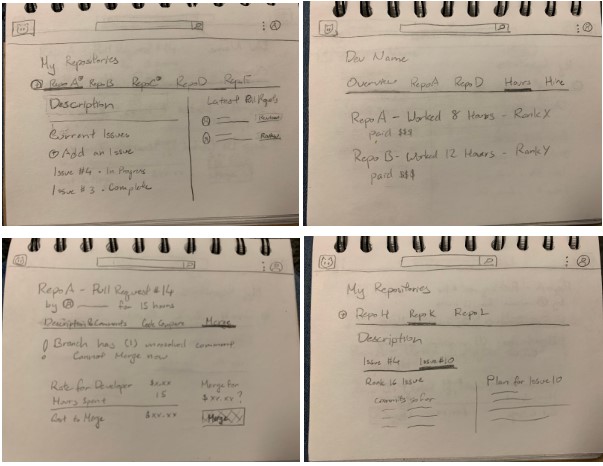 My Repositories
Repo A Repo B Repo C Repo D Repo E
Description
Latest Pull Requests
Current Issues
Add an Issue
Issue #4 - In Progress
Issue #3 - Complete
Dev Name
Overview Repo A Repo D Hours Hire
Repo A - Worked 8 Hours - Rank X
paid $$$
Repo B - Worked 12 Hours - Rank Y
paid $$$
Repo A - Pull Request #14
by for 15 hours
Description & Comments Code Compare Merge
Branch has (1) unresolved comment
Cannot Merge now
Rate for Developer $xx.xx
Hours Spent 15
Cost to Merge $xx.xx
Merge for
$xx.xx ?
Merge
My Repositories
Repo H Repo K Repo L
Description
Issue #4 Issue #10
Rank 16 Issue
commits so far
Plan for Issue 10